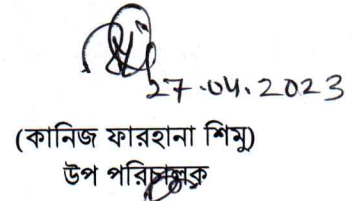 27.04.2023
(কানিজ ফারহানা শিমু)
উপ পরিচালক